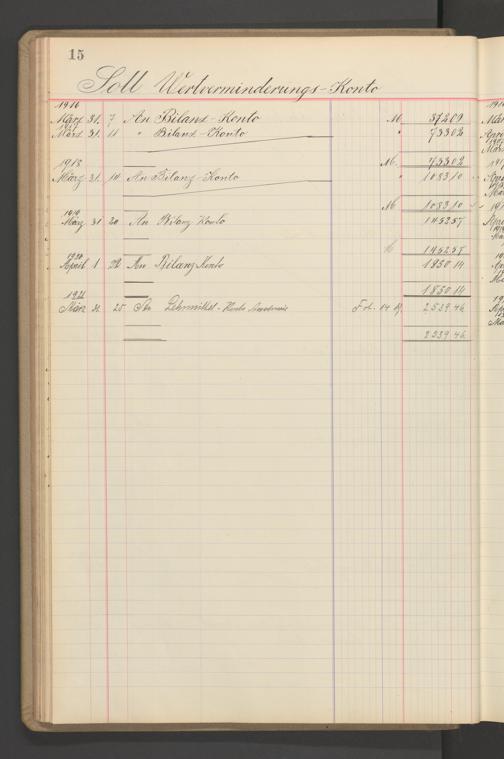 15
Soll Wertverminderungs-Konto
1916
März 31. 7 An Bilanz-Konto M. 37209
März 31. 11 " Bilanz-Konto " 73302
M. 73302
1918
März 31. 14 An Bilanz-Konto " 108310
M 108310
1919
März 31 20 An Bilanz Konto 145257
145257
1920
April 1 22 An Bilanz Konto 1850 14
1850 14
1921
März 31. 25 An Lehrmittel-Konto Fol. 14 2539 46
2539 46